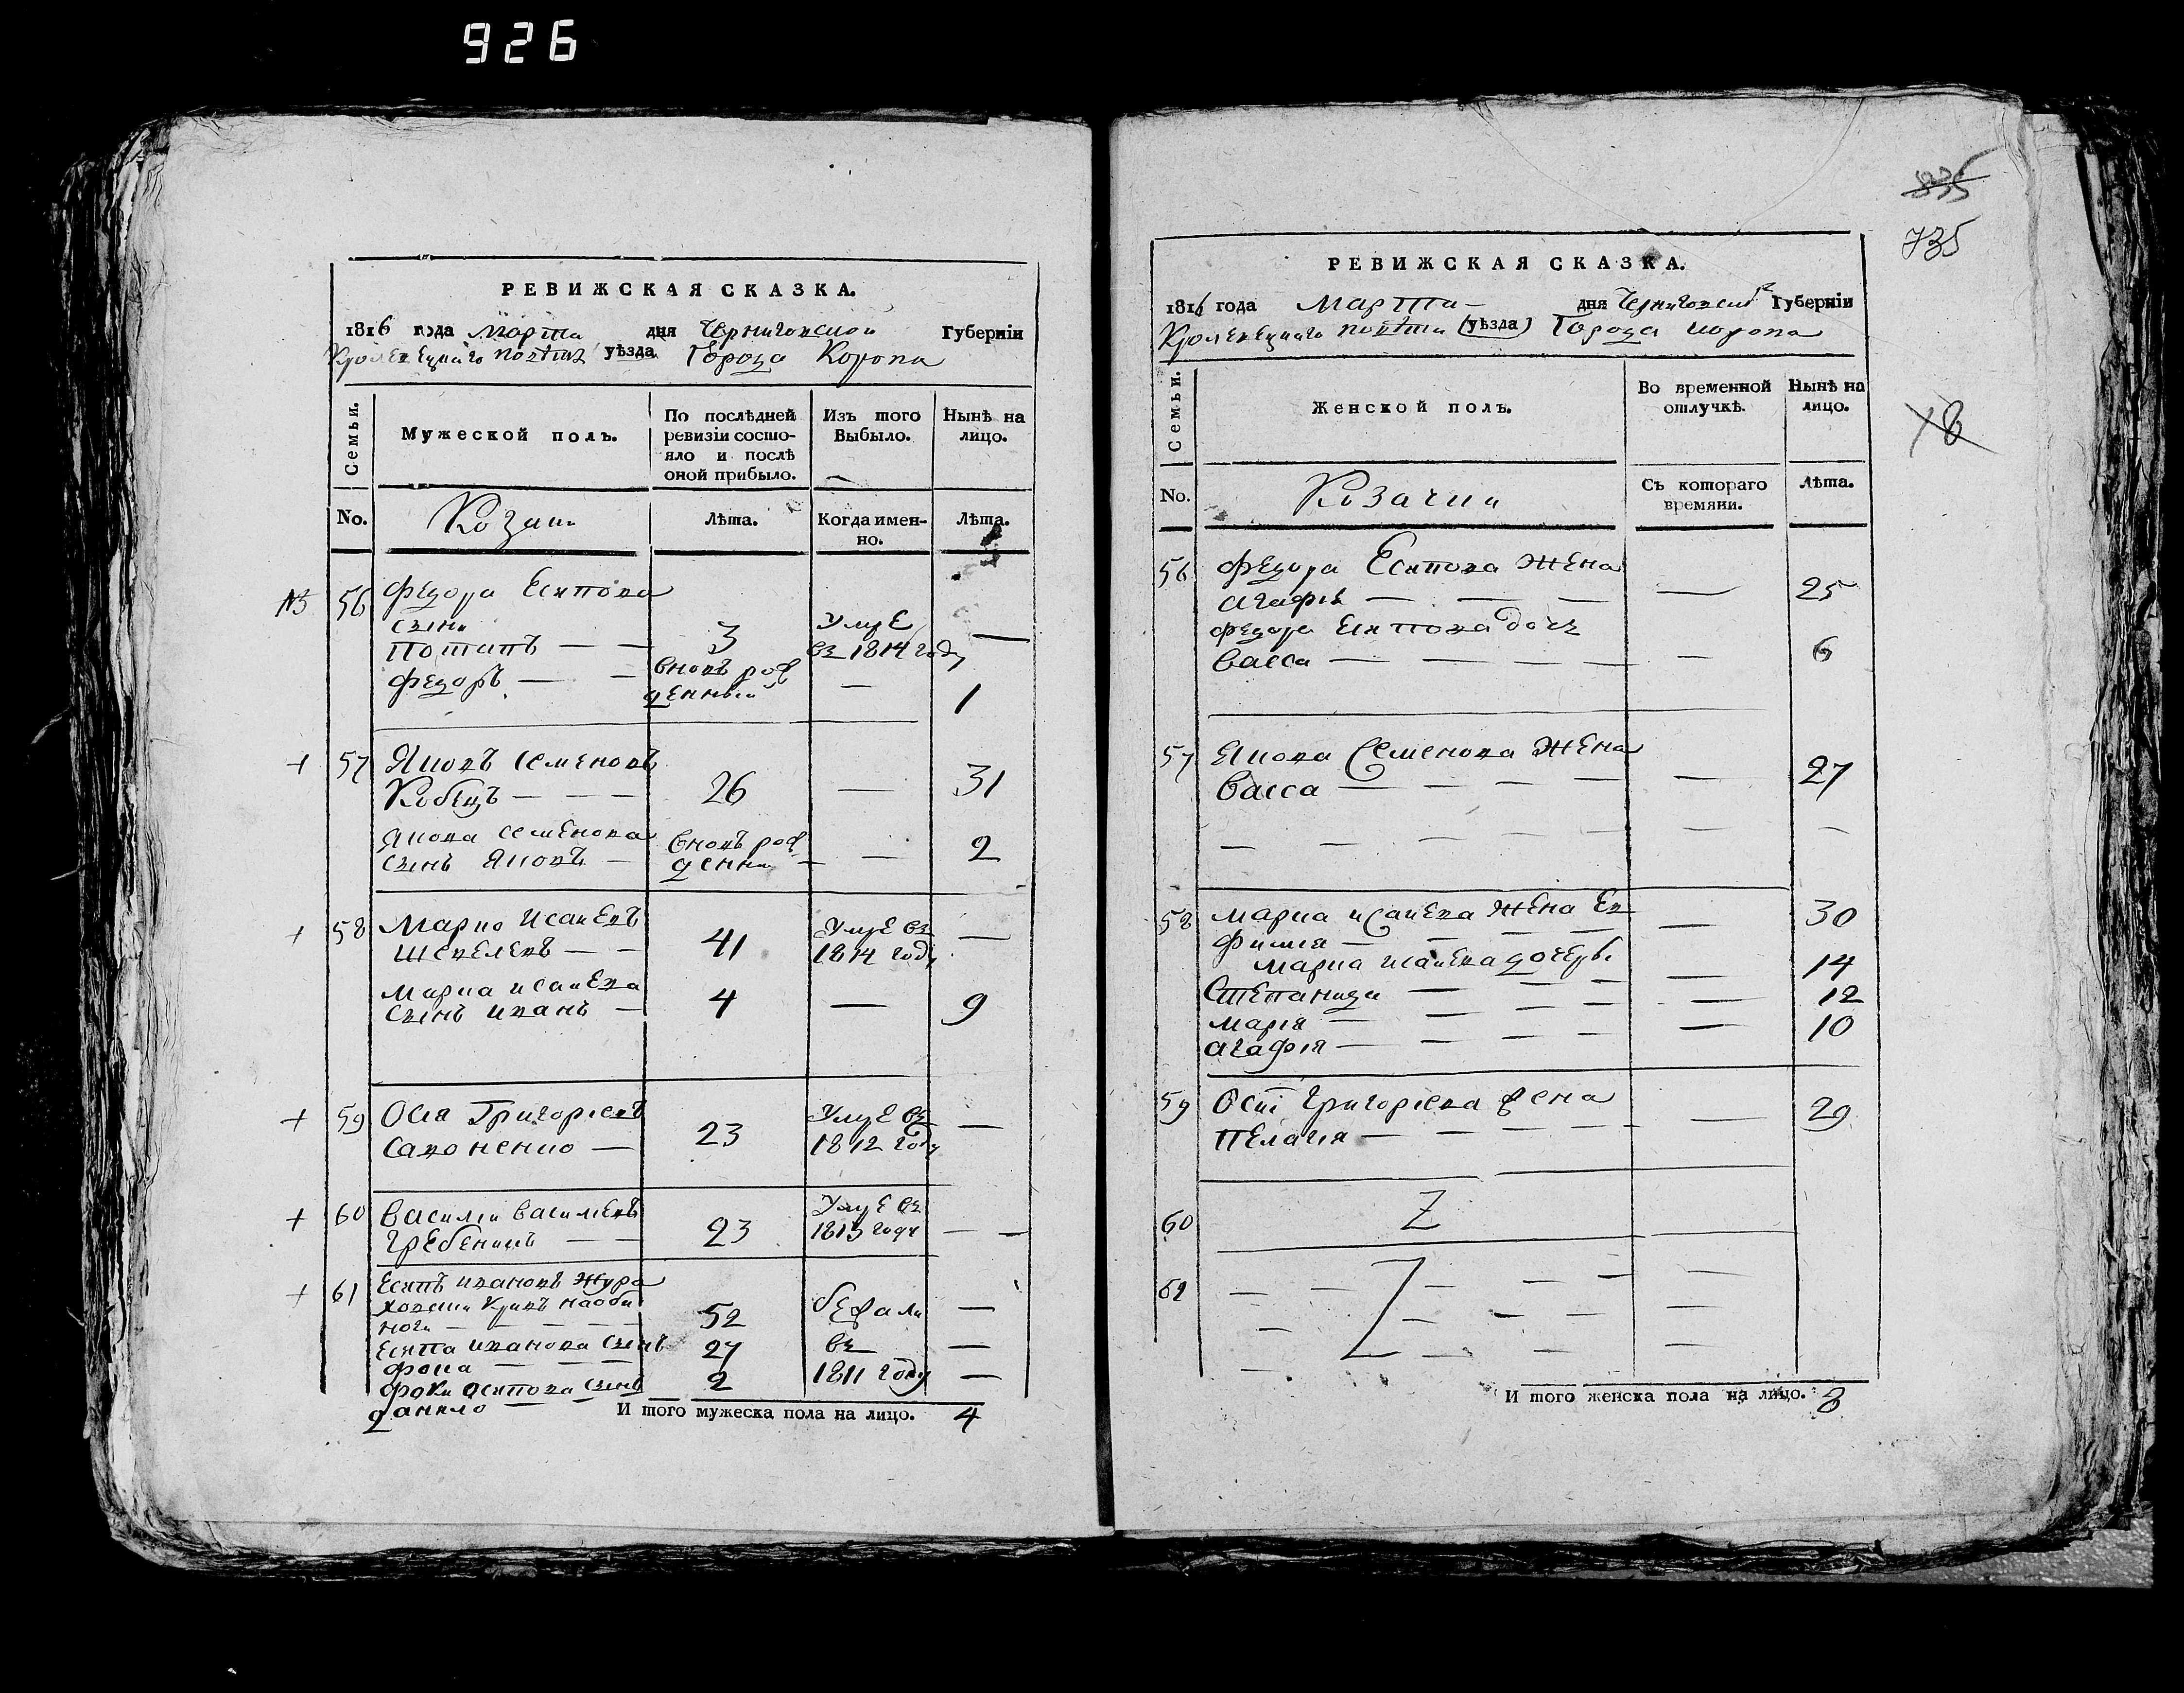 926
РЕВИЖСКАЯ СКАЗКА.
1816 года Марта дня Черниговской Губерніи
Кролевецкаго повѣта уѣзда Города Коропа
Семьи.
Мужеской полъ.
По послѣдней ревизіи состояло и послѣ оной прибыло.
Изъ того Выбыло.
Нынѣ на лицо.
No.
Козаки
Лѣта.
Когда именно.
Лѣта.
№ 56 Федора Есипова
сыни
Потапъ — — 3 Умре въ 1814 году —
Федоръ — — вновь рожденный — 1
+ 57 Яковъ Семеновъ
Кобецъ — — — 26 — 31
Якова Семенова
сынъ Яковъ — вновь рожденны — — 2
+ 58 Марко Исаиевъ
Шевелевъ — — 41 Умре въ 1814 году —
Марка Исаиева
сынъ Иванъ — 4 — 9
+ 59 Осия Григориевъ
Сахоненко — 23 Умре въ 1812 году —
+ 60 Василии Василиевъ
Гребеникъ — — 23 Умре въ 1813 году — —
+ 61 Есипъ Ивановъ Жура
ховски кривъ на оби
ноги — — — — — 52 бежали —
Есипа Иванова сынъ
Фока — — — 27 въ —
Фоки Осипова сынъ 2 1811 году —
Данило — — —
И того мужеска пола на лицо. 4
835
735
РЕВИЖСКАЯ СКАЗКА.
1816 года Марта — дня Черниговской Губерніи
Кролевецкаго повѣта (уѣзда) Города Коропа
18
Семьи.
Женской полъ.
Во временной отлучкѣ.
Нынѣ на лицо.
No.
Козачки
Съ котораго времяни.
Лѣта.
56 Федора Есипова жена
Агафія — — — — 25
Федора Есипова дочь
Васса — — — — — 6
57 Якова Семенова жена
Васса — — — — — 27
— — — — — — —
58 Марка Исаиева жена Ев
фимия — — — — — 30
Марка Исаиева дочеры
Степанида — — — — 14
Мария — — — — — 12
Агафия — — — — — 10
59 Осии Григориева жена
Пелагия — — — — — — 29
60
62
И того женска пола на лицо. 8